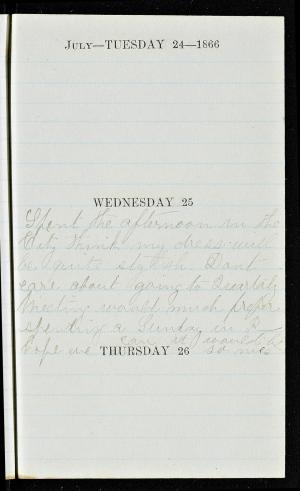 July—TUESDAY 24—1866
WEDNESDAY 25
Spent the afternoon in the
City think my dress will
be quite stylish Dont
care about going to Quarterly
Meeting would much prefer
spending a Sunday in
hope we can it would be
THURSDAY 26
so nice